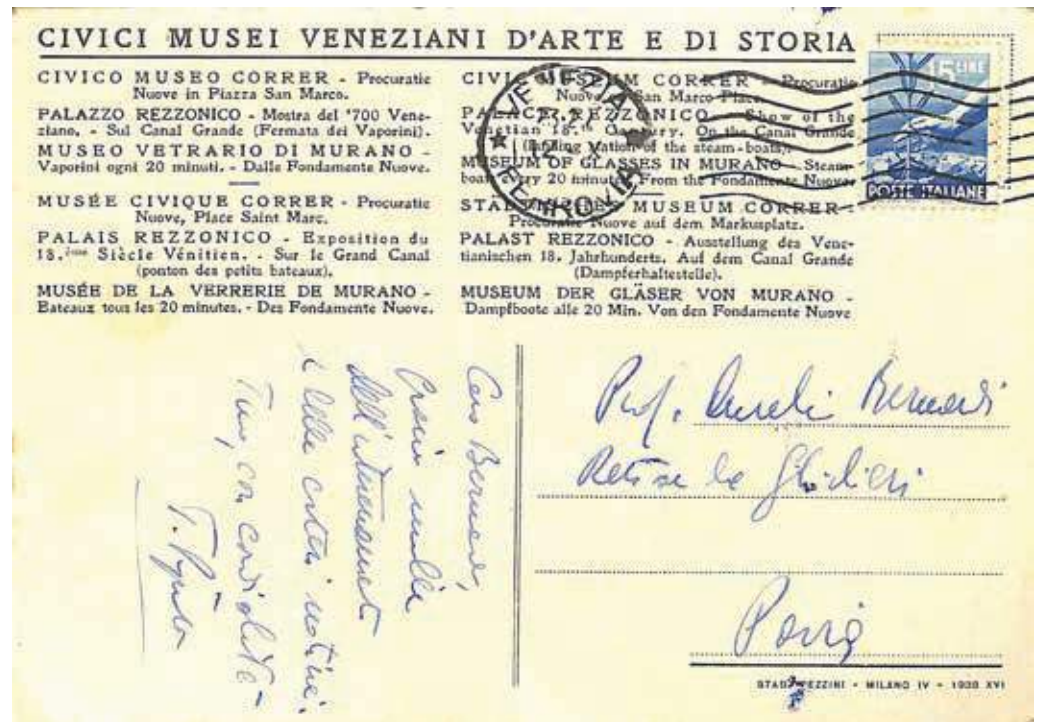 CIVICI MUSEI VENEZIANI D'ARTE E DI STORIA
CIVICO MUSEO CORRER - Procuratie
Nuove in Piazza San Marco.
PALAZZO REZZONICO - Mostra del '700 Vene-
ziano. - Sul Canal Grande (Fermata dei Vaporini).
MUSEO VETRARIO DI MURANO -
Vaporini ogni 20 minuti. - Dalle Fondamente Nuove.
MUSÉE CIVIQUE CORRER - Procuratie
Nuove, Place Saint Marc.
PALAIS REZZONICO - Exposition du
18.ème Siècle Vénitien. - Sur le Grand Canal
(ponton des petits bateaux).
MUSÉE DE LA VERRERIE DE MURANO -
Bateaux tous les 20 minutes. - Des Fondamente Nuove.
CIVIC MUSEUM CORRER - Procuratie
Nuove, San Marco Place.
PALACE REZZONICO - Show of the
Venetian 18.th Century. On the Canal Grande
(landing station of the steam-boats).
MUSEUM OF GLASSES IN MURANO - Steam-
boats every 20 minutes. From the Fondamente Nuove
MUSEUM CORRER -
Procuratie Nuove auf dem Markusplatz.
PALAST REZZONICO - Ausstellung des Vene-
tianischen 18. Jahrhunderts. Auf dem Canal Grande
(Dampferhaltestelle).
MUSEUM DER GLÄSER VON MURANO -
Dampfboote alle 20 Min. Von den Fondamente Nuove
15 LIRE
POSTE ITALIANE
VENEZIA
FERROVIA
Caro Bernardi,
Grazie mille
dell'
e delle notizie.
Tuo, con cordialità
Prof. Aurelio Bernardi
Ghislieri
Pavia
STAB. PEZZINI - MILANO IV - 1938 XVI